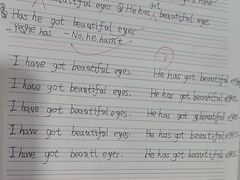 beautiful eyes ② He has got beautiful eyes
③ Has he got beautiful eyes
- Yes he has - No, he hasn't
I have got beautiful eyes. He has got beautiful eyes.
I have got beautiful eyes. He has got beautiful eyes
I have got beautiful eyes. He has got beautiful eyes
I have got beautiful eyes. He has got beautiful eyes
I have got beauti eyes. He has got beautiful eyes.